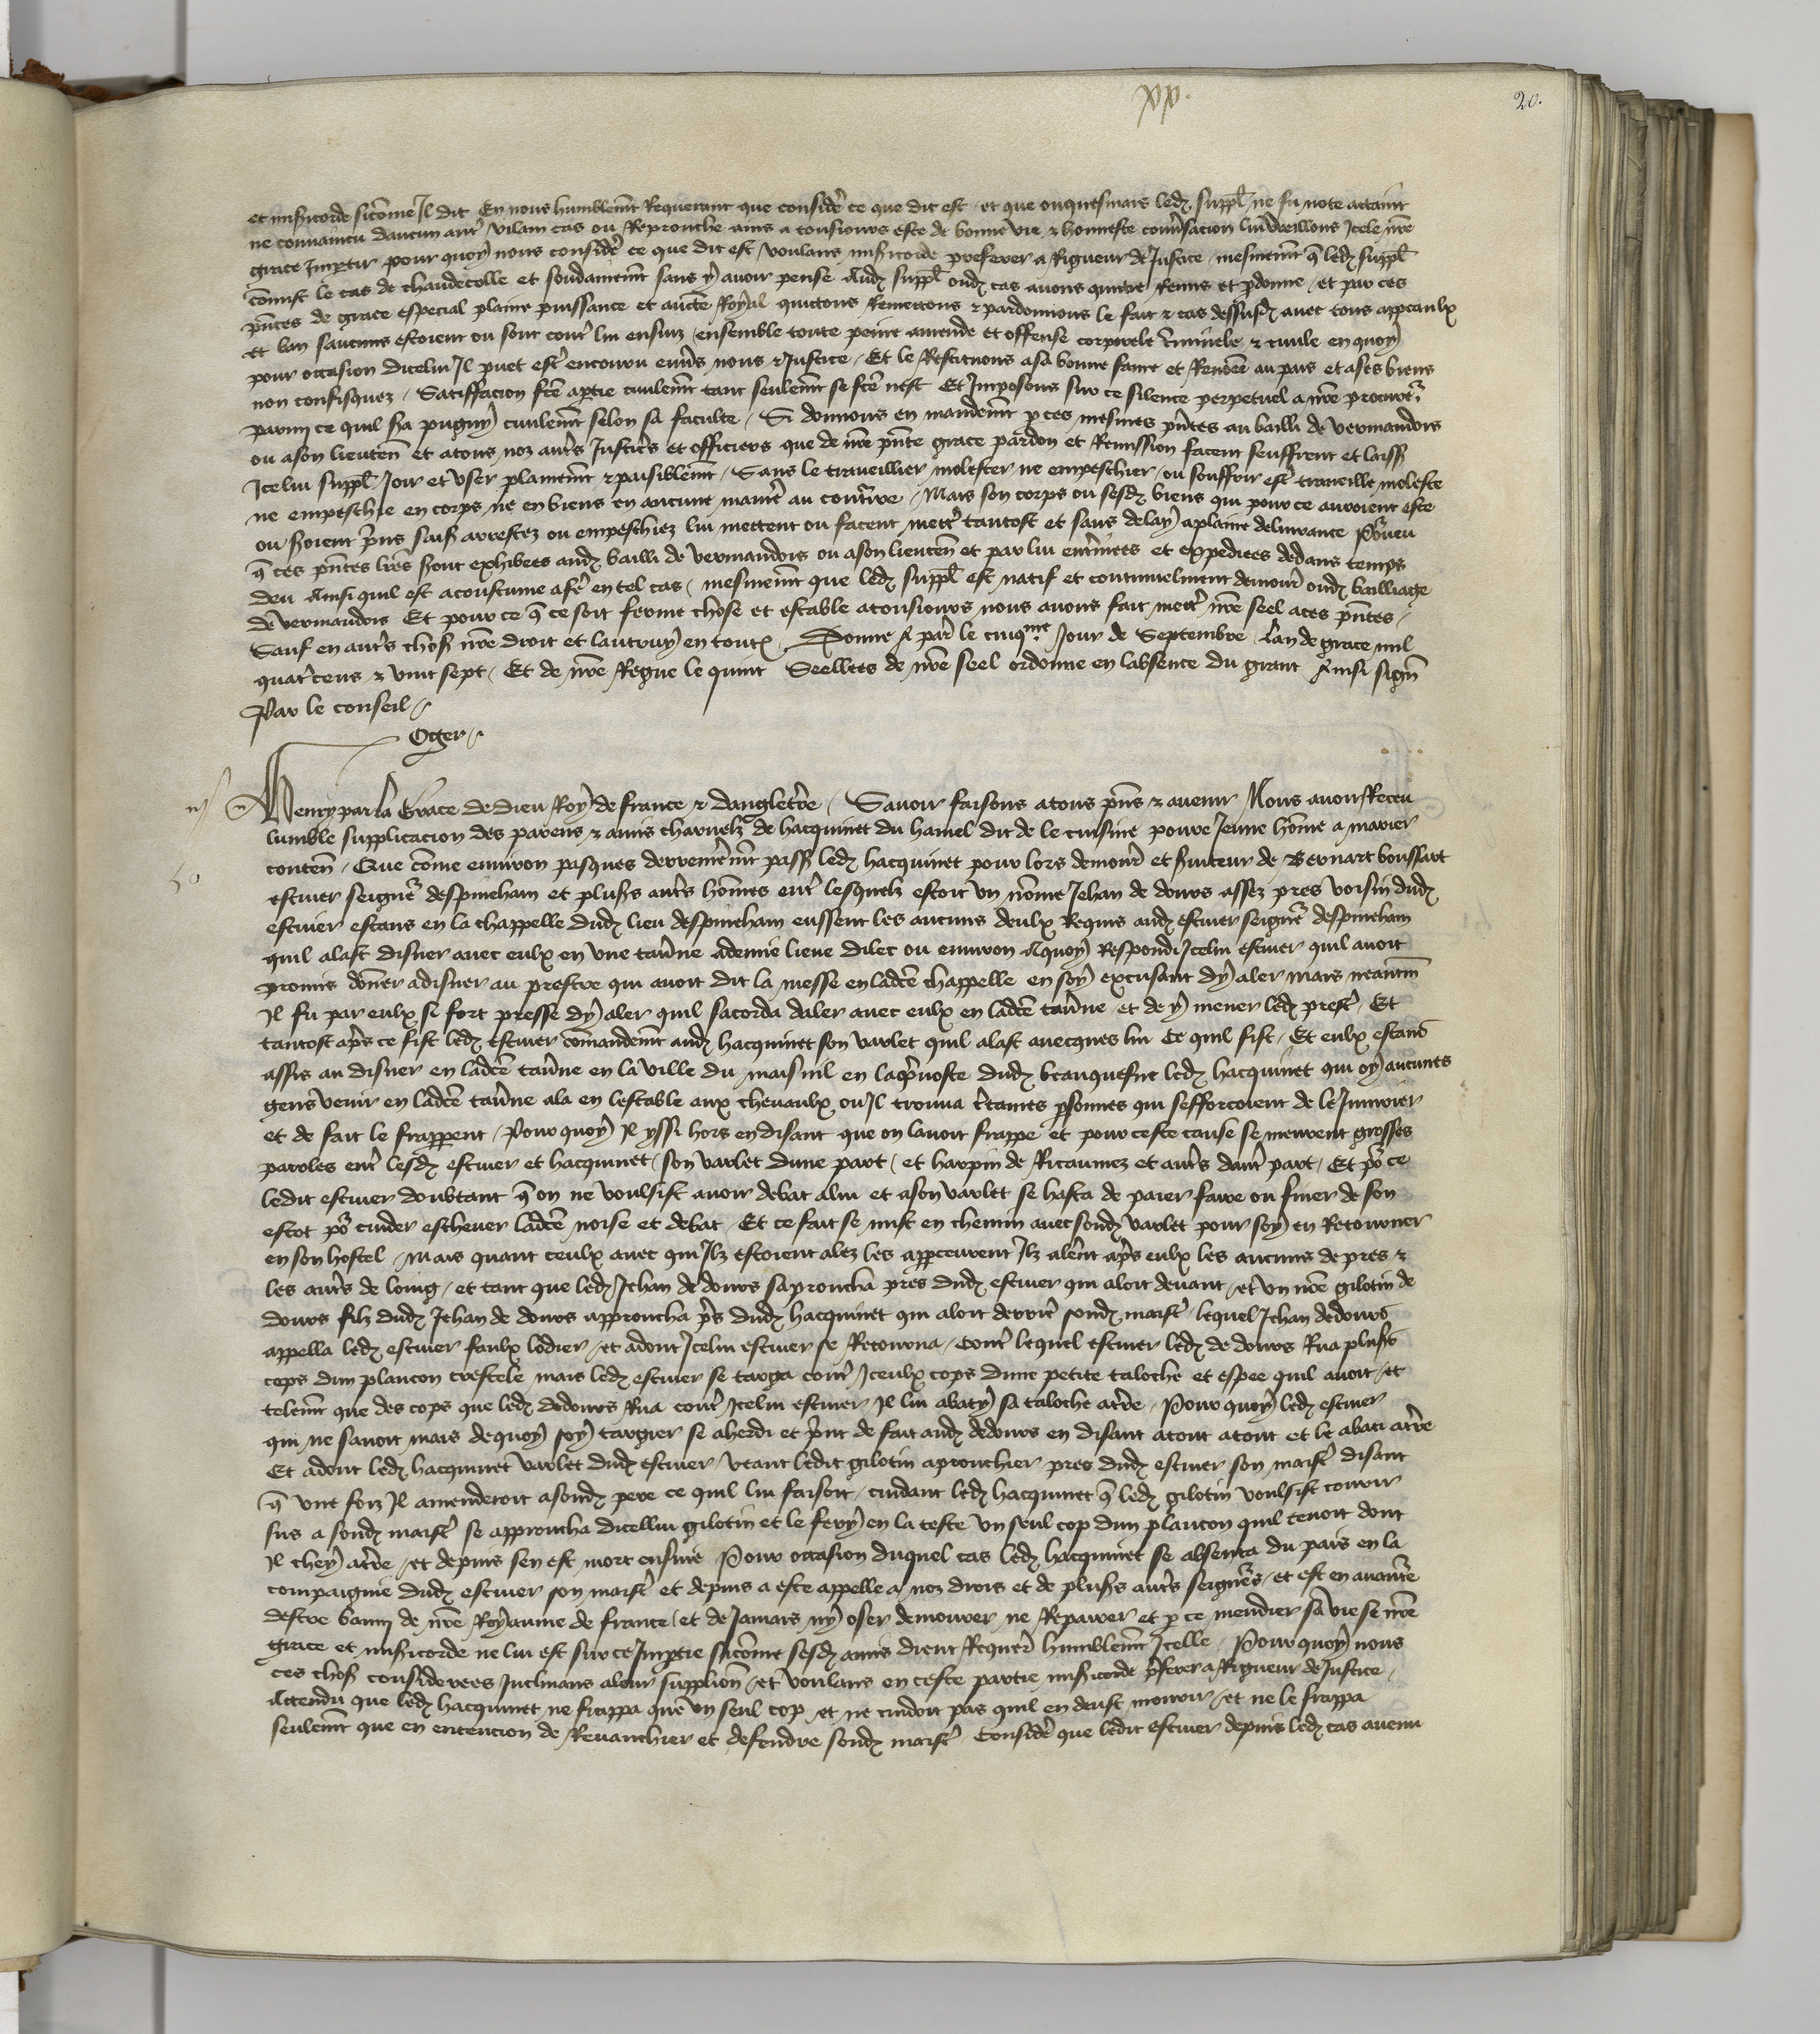 xx.
20.
et misericorde sicome Il dit En nous humblemt Requerant que considere ce que dit est et que onquesmais ledz suppl ne fu note attaint
ne convaincu daucun autre vilain cas ou Reprouche ains a tousiours este de bonne vie & honneste conversacion lui vueillons Icele nre
grace Impartir pour quoy nous considere ce que dit est voulans misericorde preferer a Rigueur de Justice mesmemt q ledz suppl
comist le cas de chaudecolle et soudainemt sans y avoir pense Audz suppl oudz cas avons quitte Remis et pdonne et par ces
pntes de grace especial plaine puissance et aucte Royal quittons Remettons & pardonnons le fait & cas dessusdz avec tous appeaulx
et ban saucuns estoient ou sont contre lui ensuiz ensemble toute peine amende et offense corporele criminele & civile en quoy
pour occasion dicelui Il puet estre encouru envers nous & Justice Et le Restituons a sa bonne fame et Renomee au pais et a ses biens
non confisquez Satiffacion fce a ptie civilemt tant seulemt se fce nest Et Imposons sur ce silence perpetuel a nre procureur
parmi ce quil sa pugny civilemt selon sa faculte Si donnons en mandemt p ces mesmes pntes au bailli de vermandois
ou a son lieuten et a tous noz autres Justiciers et officiers que de nre pnte grace pardon et Remission facent seuffrent et laiss
Icelui suppl Joir et user plainemt & paisiblemt Sans le traveillier molester ne empeschier ou souffrir estre traveille moleste
ne empeschie en corps ne en biens en aucune maniere au contraire Mais son corps ou sesdz biens qui pour ce auroient este
ou seroient prins saisis arrestez ou empeschiez lui mettent ou facent mettre tantost et sans delay a plaine delivrance Pourveu
q ces pntes lres soient exhibees audz bailli de vermandois ou a son lieuten et par lui enterinees et expediees dedans temps
deu Ainsi quil est acoustume a fere en tel cas mesmemt que ledz suppl est natif et continuelment demourant oudz bailliage
de vermandois Et pour ce q ce soit ferme chose et estable a tousiours nous avons fait mettre nre seel a ces pntes
Sauf en autres choses nre droit et lautruy en toutes Donne a paris le cinqme Jour de Septembre Lan de grace mil
quatre cens & vint sept Et de nre Regne le quint Seellees de nre seel ordonne en labsence du grant Ainsi signe
Par le conseil
Oger
Henry par la Grace de dieu Roy de france & dangleterre Savoir faisons a tous pns & avenir Nous avoir Receu
lumble supplicacion des parens & amis charnelz de hacquinet du hamel dit de le cuisine povre Jeune home a marier
conten Que come environ pasques derrenieremt pass ledz hacquinet pour lors demourant et serviteur de Bernart boussart
escuier seigneur despineham et pluss autres homes entre lesquelz estoit un nome Jehan de dours assez pres voisin dudz
escuier estans en la chappelle dudz lieu despineham eussent les aucuns deulx Requis audz escuier seigneur despineham
quil alast disner avec eulx en une taverne a demie lieue dilec ou environ Aquoy Respondi Icelui escuier quil avoit
promis donner a disner au prestre qui avoit dit la messe en ladce chappelle en soy excusant dy aler mais neantm
Il fu par eulx si fort presse dy aler quil sacorda daler avec eulx en ladce taverne et de y mener ledz prestre Et
tantost apres ce fist ledz escuier comandemt audz hacquinet son varlet quil alast avecques lui Ce quil fist Et eulx estans
assis au disner en ladce taverne en la ville du maisnil en la prevoste dudz beauquesne ledz hacquinet qui oy aucunes
gens venir en ladce taverne ala en lestable aux chevaulx ou Il trouva certaines psonnes qui sefforcoient de le Iniurier
et de fait le frapperent Pour quoy Il yssi hors en disant que on lavoit frappe et pour ceste cause se meurent grosses
paroles entre lesdz escuier et hacquinet son varlet dune part et harpin de Ricaumez et autres dautre part Et pour ce
ledit escuier doubtant q on ne voulsist avoir debat a lui et a son varlet se hasta de paier faire ou finer de son
escot pour cuider eschever ladce noise et debat Et ce fait se mist en chemin avec sondz varlet pour soy en Retourner
en son hostel Mais quant ceulx avec qui Ilz estoient alez les apperceurent Ilz alerent apres eulx les aucuns de pres &
les autres de loing et tant que ledz Jehan de dours saproucha pres dudz escuier qui aloit devant et un nome gilotin de
dours filz dudz Jehan de dours approucha pres dudz hacquinet qui aloit derriere sondz maistre lequel Jehan de dours
appella ledz escuier faulx lodier et adont Icelui escuier se Retourna contre lequel escuier ledz de dours Rua pluss
cops dun plancon crestele mais ledz escuier se targa contre Iceulx cops dune petite taloche et espee quil avoit et
telemt que des cops que ledz de dours Rua contre Icelui escuier Il lui abaty sa taloche a terre Pour quoy ledz escuier
qui ne savoit mais de quoy soy targier se aherdi et print de fait audz de dours en disant atout atout et le abati a terre
Et adont ledz hacquinet varlet dudz escuier veant ledit gilotin aprouchier pres dudz escuier son maistre disant
q une foiz Il amenderoit a sondz pere ce quil lui faisoit cuidant ledz hacquinet q ledz gilotin voulsist courir
sus a sondz maistre se approucha dicellui gilotin et le fery en la teste un seul cop dun plancon quil tenoit dont
Il chey a terre et depuis sen est mort ensuie Pour occasion duquel cas ledz hacquinet se absenta du pais en la
compaignie dudz escuier son maistre et depuis a este appelle a noz drois et de pluss autres seigneurs et est en aventure
destre banni de nre Royaume de france et de Jamais ny oser demourer ne Repairer et p ce mendier sa vie se nre
grace et misericorde ne lui est sur ce Impartie sicome sesdz amis dient Requerant humblemt Icelle Pour quoy nous
ces choses considerees Inclinans a leur supplicacion et voulans en ceste partie misericorde preferer a Rigueur de Justice
Attendu que ledz hacquinet ne frappa que un seul cop et ne cuidoit pas quil en deust mourir et ne le frappa
seulemt que en entencion de Revanchier et defendre sondz maistre Considere que ledit escuier depuis ledz cas avenu